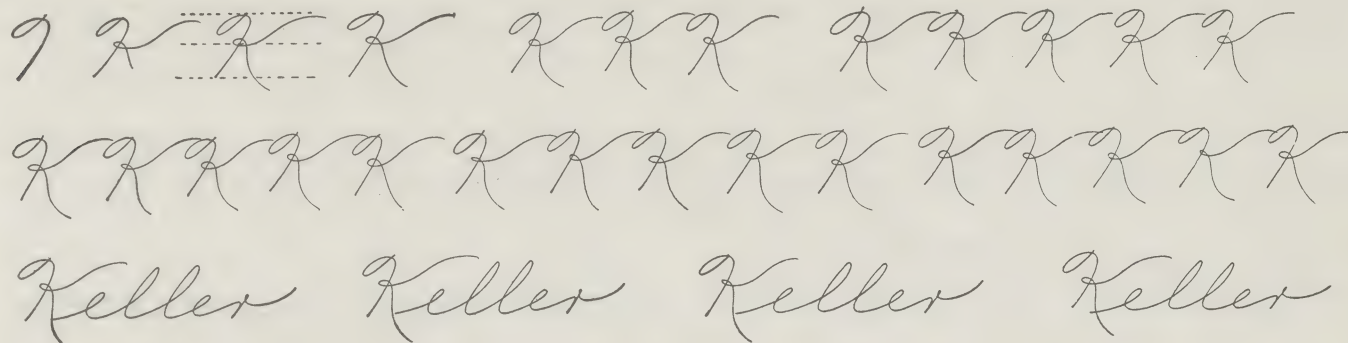 K K K K K K K K K K K
K K K K K K K K K K K K K K K
Keller Keller Keller Keller